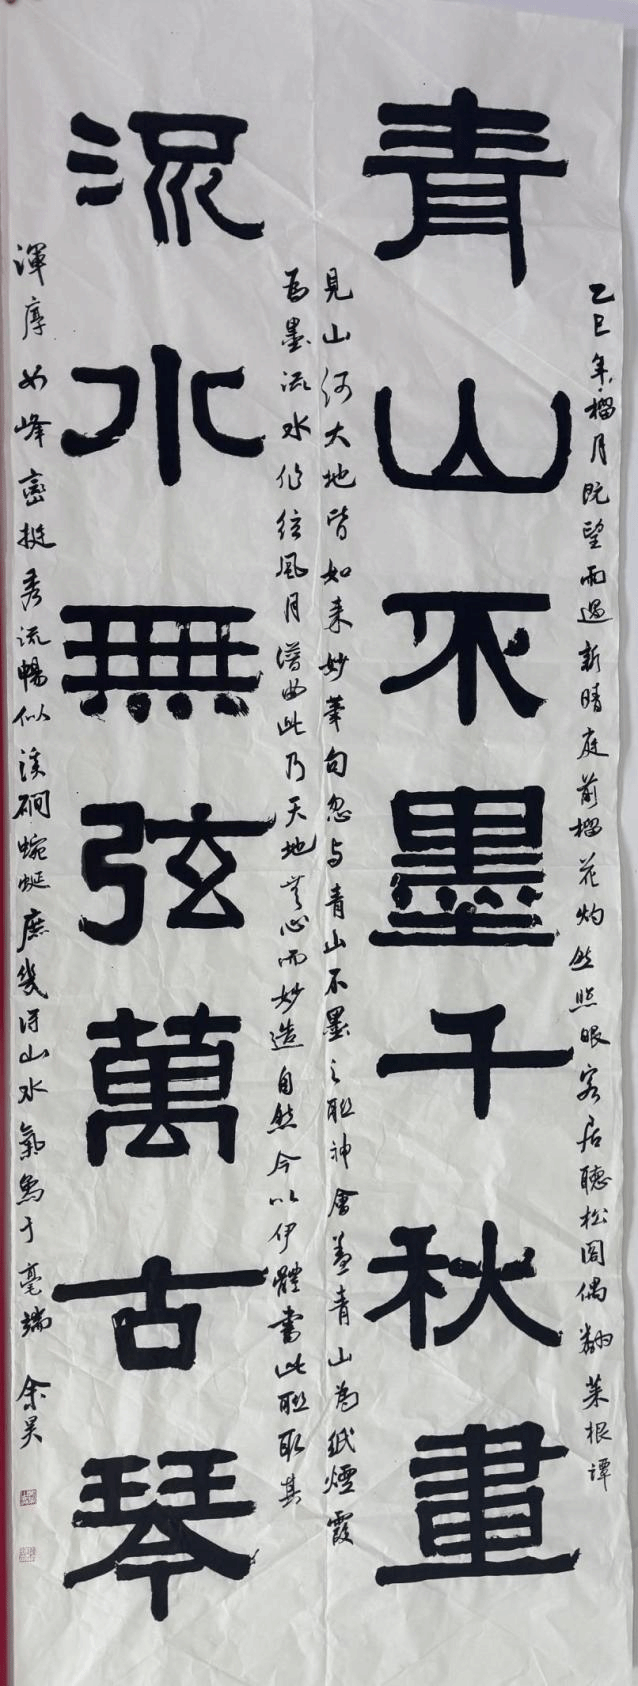 青山不墨千秋畫
流水無弦萬古琴
乙巳年榴月既望雨過新晴庭前榴花灼然照眼客居聽松閣偶翻菜根譚
見山河大地皆如来妙筆句忽与青山不墨之联神會盖青山為紙煙霞
為墨流水作弦風月譜曲此乃天地無心而妙造自然今以伊體書此联取其
渾厚如峰巒挺秀流暢似溪磵蜿蜒庶幾得山水氣焉于毫端 余昊